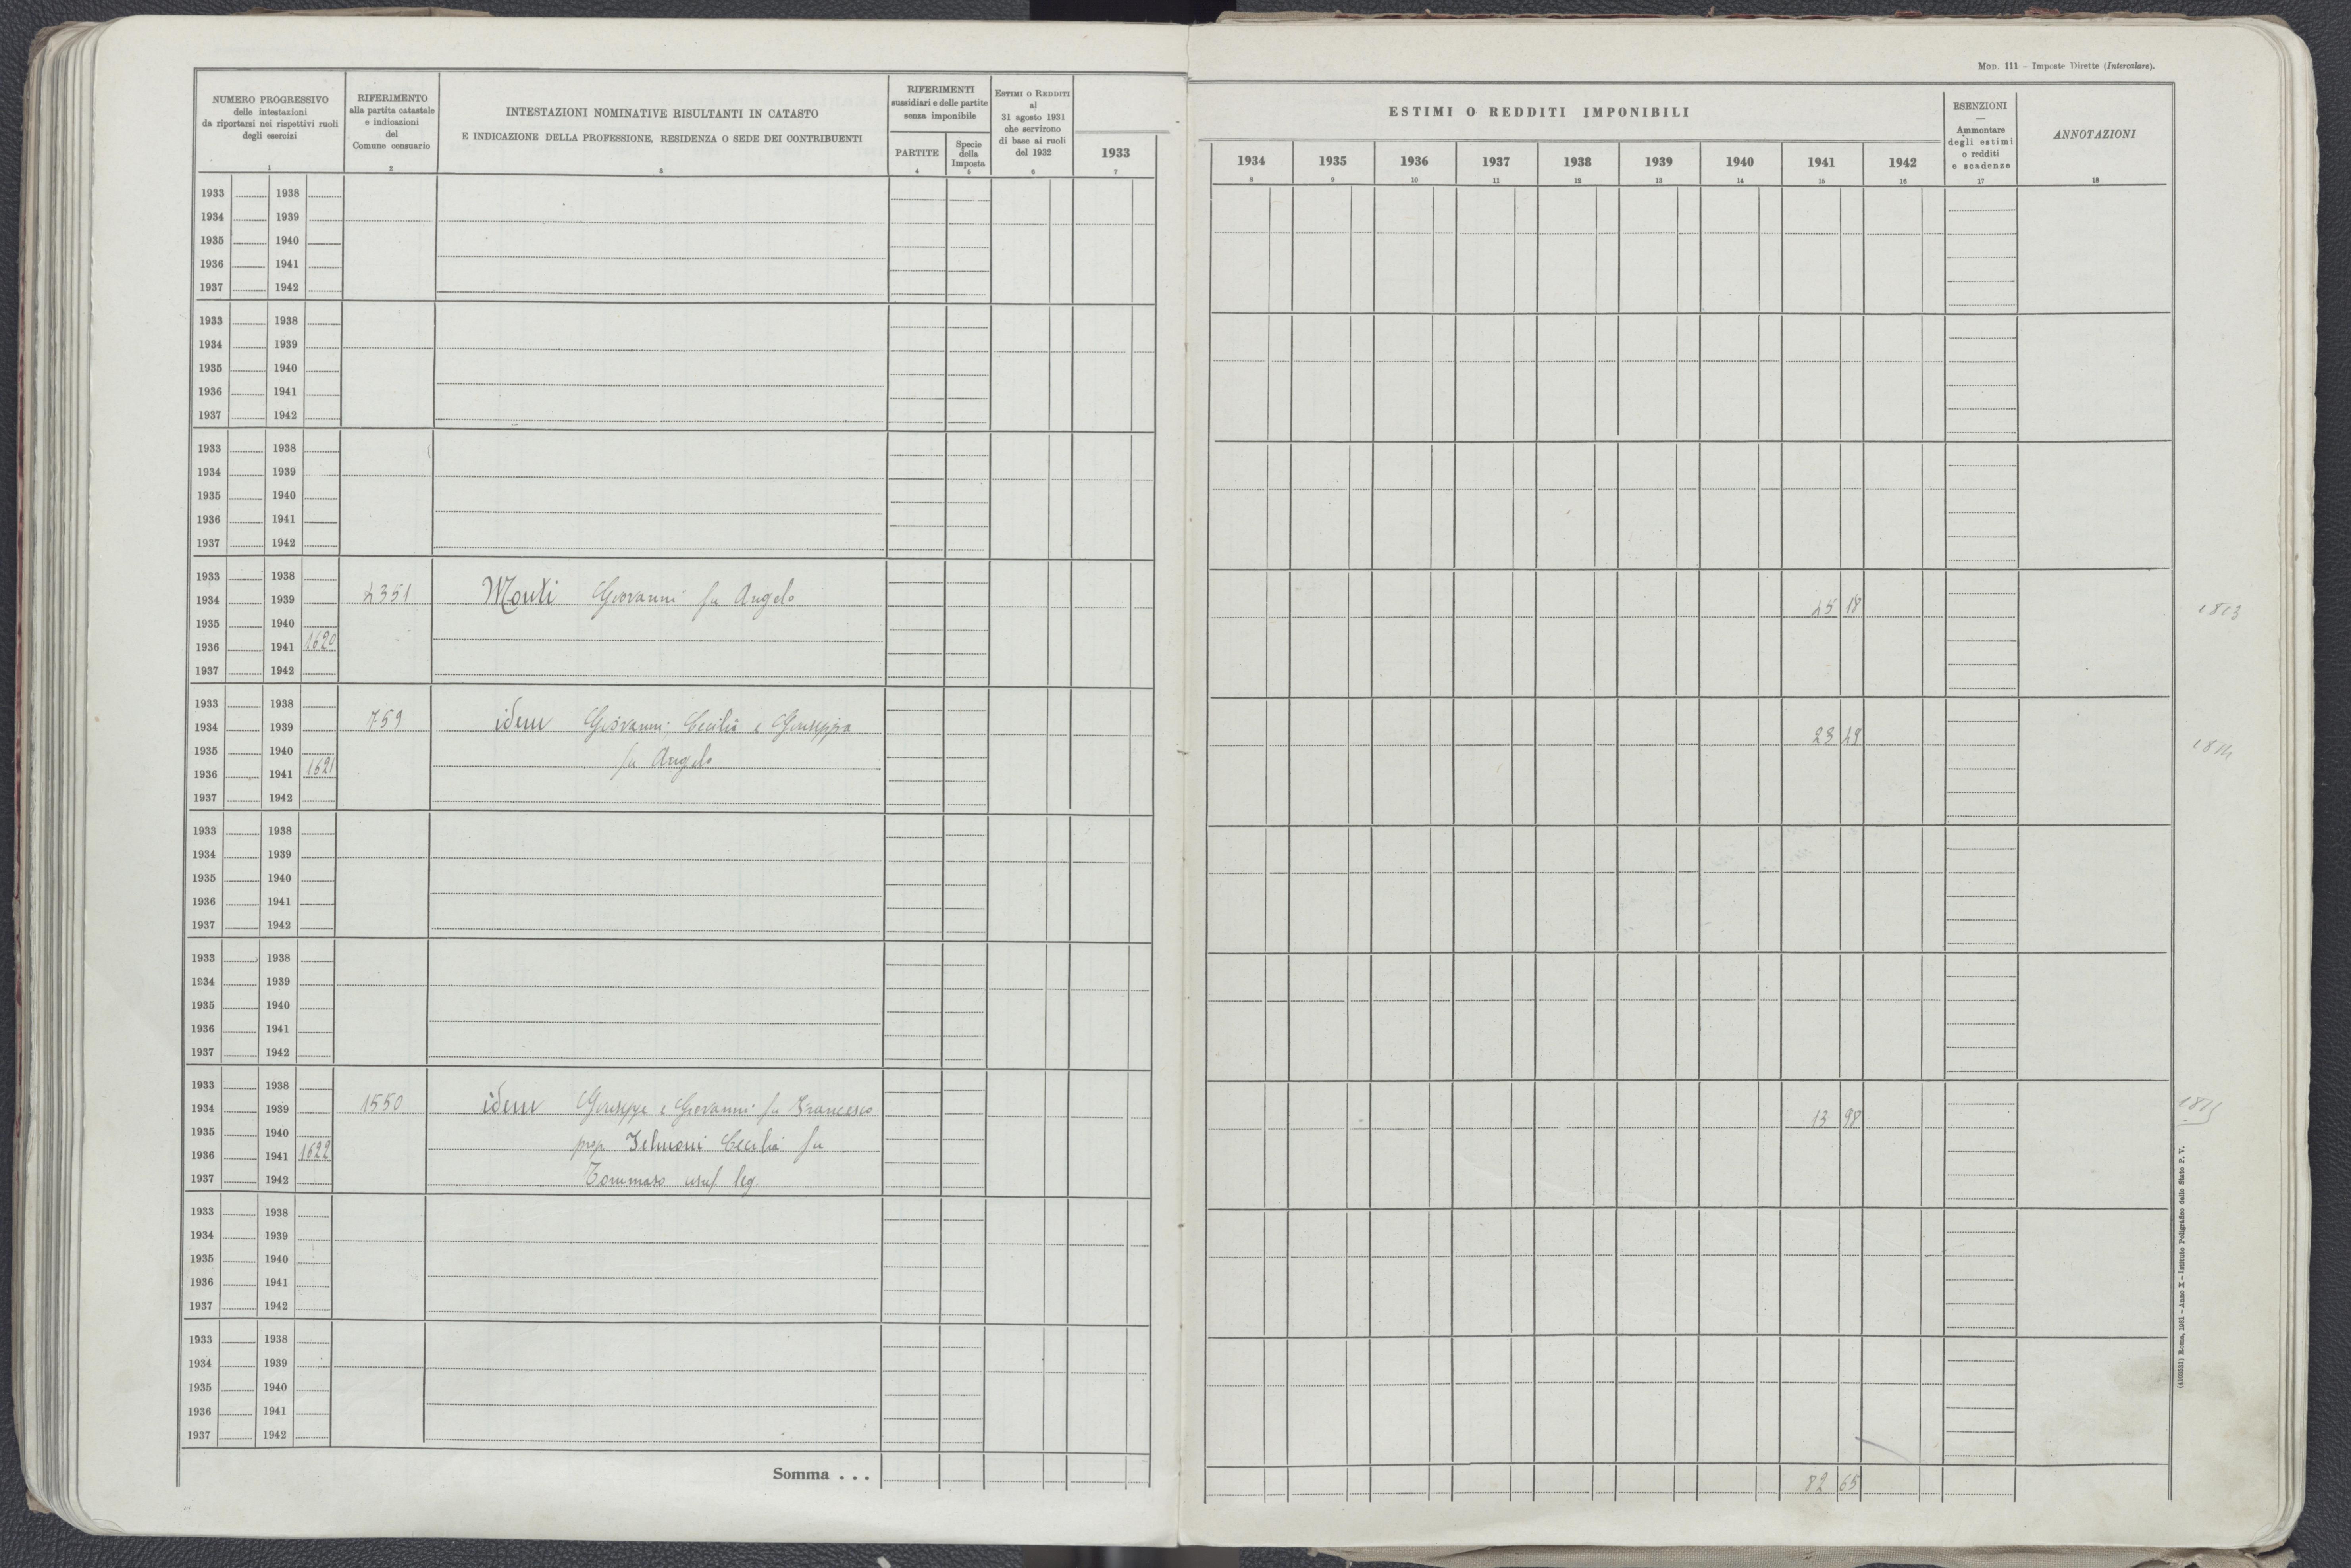 Mon. 111 – Imposte Dirette (Intercalare).
NUMERO PROGRESSIVO
delle intestazioni
da riportarsi nei rispettivi ruoli
degli esercizi
1
RIFERIMENTO
alla partita catastale
e indicazioni
del
Comune censuario
2
INTESTAZIONI NOMINATIVE RISULTANTI IN CATASTO
E INDICAZIONE DELLA PROFESSIONE, RESIDENZA O SEDE DEI CONTRIBUENTI
3
RIFERIMENTI
sussidiari e delle partite
senza imponibile
PARTITE
4
Specie
della
Imposta
5
ESTIMI O REDDITI
al
31 agosto 1931
che servirono
di base ai ruoli
del 1932
6
1933
7
ESTIMI O REDDITI IMPONIBILI
1934 1935 1936 1937 1938 1939 1940 1941 1942
8 9 10 11 12 13 14 15 16
ESENZIONI
—
Ammontare
degli estimi
o redditi
e scadenze
17
ANNOTAZIONI
18
1933 1938
1934 1939
1935 1940
1936 1941
1937 1942
1933 1938
1934 1939
1935 1940
1936 1941
1937 1942
1933 1938
1934 1939
1935 1940
1936 1941
1937 1942
1933 1938
1934 1939 4351 Monti Giovanni fu Angelo 45 18 1813
1935 1940
1936 1941 1620
1937 1942
1933 1938
1934 1939 759 idem Giovanni, Cecilia e Giuseppa 23 49 1814
1935 1940 fu Angelo
1936 1941 1621
1937 1942
1933 1938
1934 1939
1935 1940
1936 1941
1937 1942
1933 1938
1934 1939
1935 1940
1936 1941
1937 1942
1933 1938
1934 1939 1550 idem Giuseppe e Giovanni fu Francesco 13 98 1815
1935 1940 prop. Cecilia fu
1936 1941 1622
1937 1942 Tommaso usuf. leg.
1933 1938
1934 1939
1935 1940
1936 1941
1937 1942
1933 1938
1934 1939
1935 1940
1936 1941
1937 1942
Somma . . . 82 65
(4103531) Roma, 1931 – Anno X – Istituto Poligrafico dello Stato P. V.